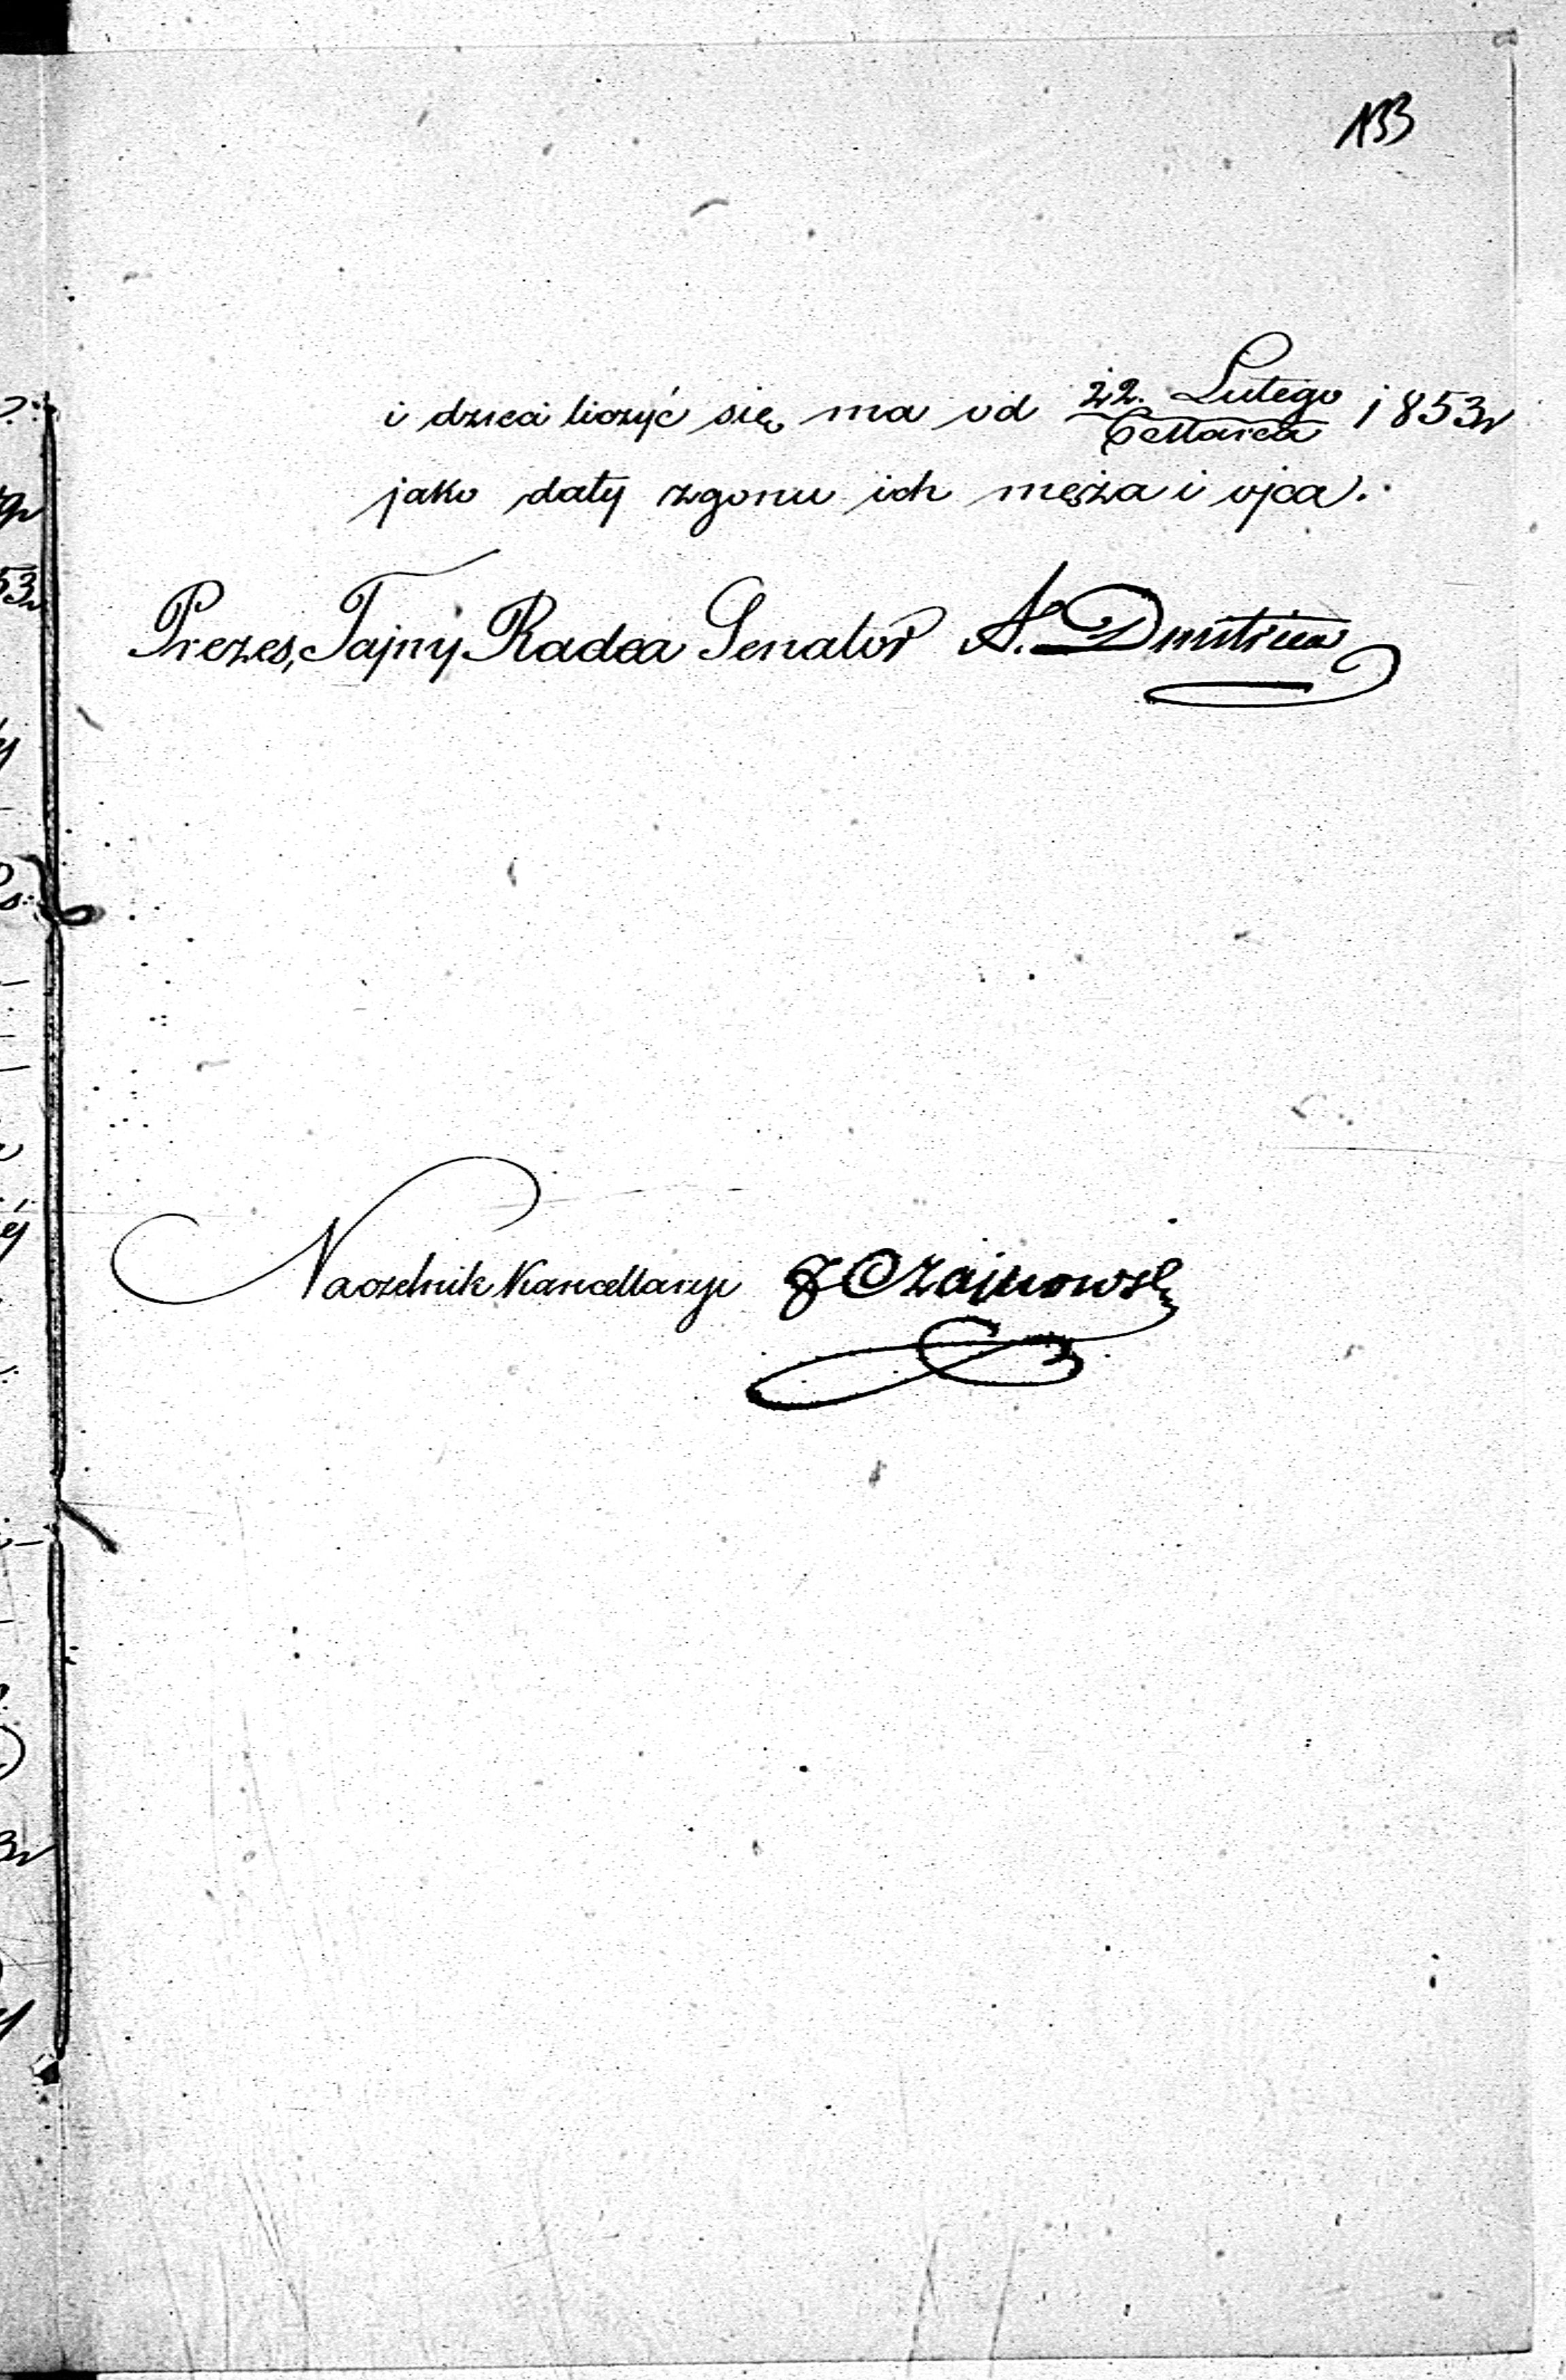 133
i dzieci liczyć się ma od 22. Lutego / 6 Marca 1853r
jako daty zgonu ich męża i ojca.
Prezes, Tajny Radca Senator A. Dmitriew
Naczelnik Kancellaryi F Czajkowski